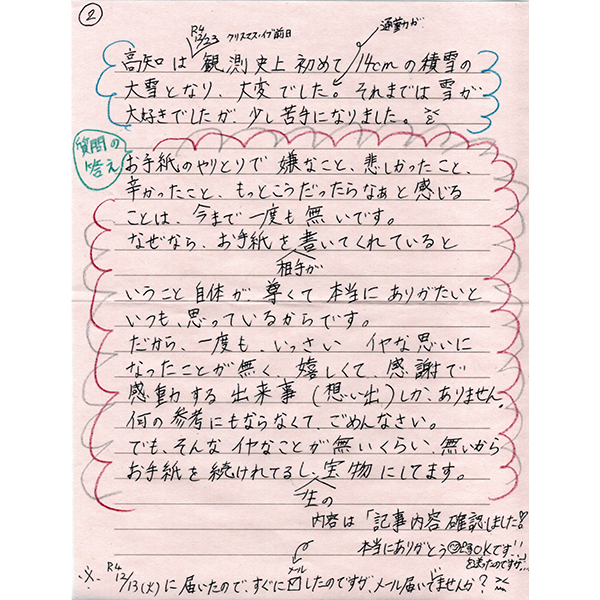 ②
R4 12/23 クリスマス・イブ前日
通勤が
高知は観測史上初めて14cmの積雪の
大雪となり、大変でした。それまでは雪が
大好きでしたが、少し苦手になりました。
質問の答え
お手紙のやりとりで嫌なこと、悲しかったこと、
辛かったこと、もっとこうだったらなぁと感じる
ことは、今まで一度も無いです。
なぜなら、お手紙を書いてくれていると
相手が
いうこと自体が、尊くて本当にありがたいと
いつも、思っているからです。
だから、一度も、いっさい イヤな思いに
なったことが無く、嬉しくて、感謝で
感動する出来事(想い出)しか、ありません。
何の参考にもならなくて、ごめんなさい。
でも、そんなイヤなことが無いくらい、無いから
お手紙を続けれてるし、宝物にしてます。
生の
内容は「記事内容確認しました!
本当にありがとう OKです!!」
を送ったのですが…
※ R4 12/13(火)に届いたので、すぐに したのですが、メール届いてませんか?
メール